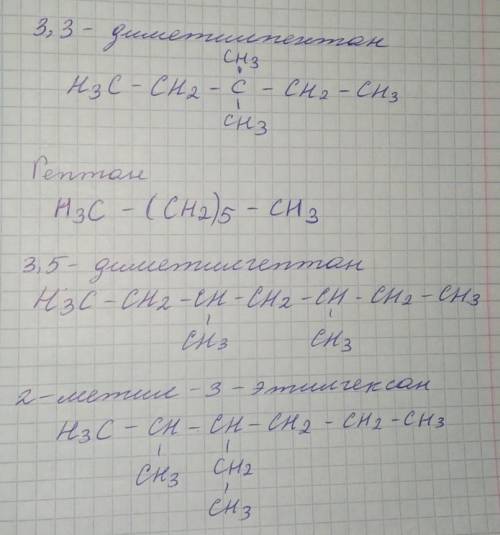 3,3 - диметилпентан
CH3
H3C - CH2 - C - CH2 - CH3
CH3
Гептан
H3C - (CH2)5 - CH3
3,5 - диметилгептан
H3C - CH2 - CH - CH2 - CH - CH2 - CH3
CH3 CH3
2-метил - 3 - этилгексан
H3C - CH - CH - CH2 - CH2 - CH3
CH3 CH2
CH3